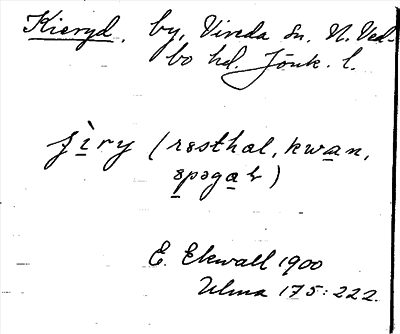 Kieryd. by, Vireda sn. N. Ved-
bo hd. Jönk. l.
jìry (rɛsthal, kwan,
spəgaḷ)
E. Ekwall 1900
Ulma 175:222.